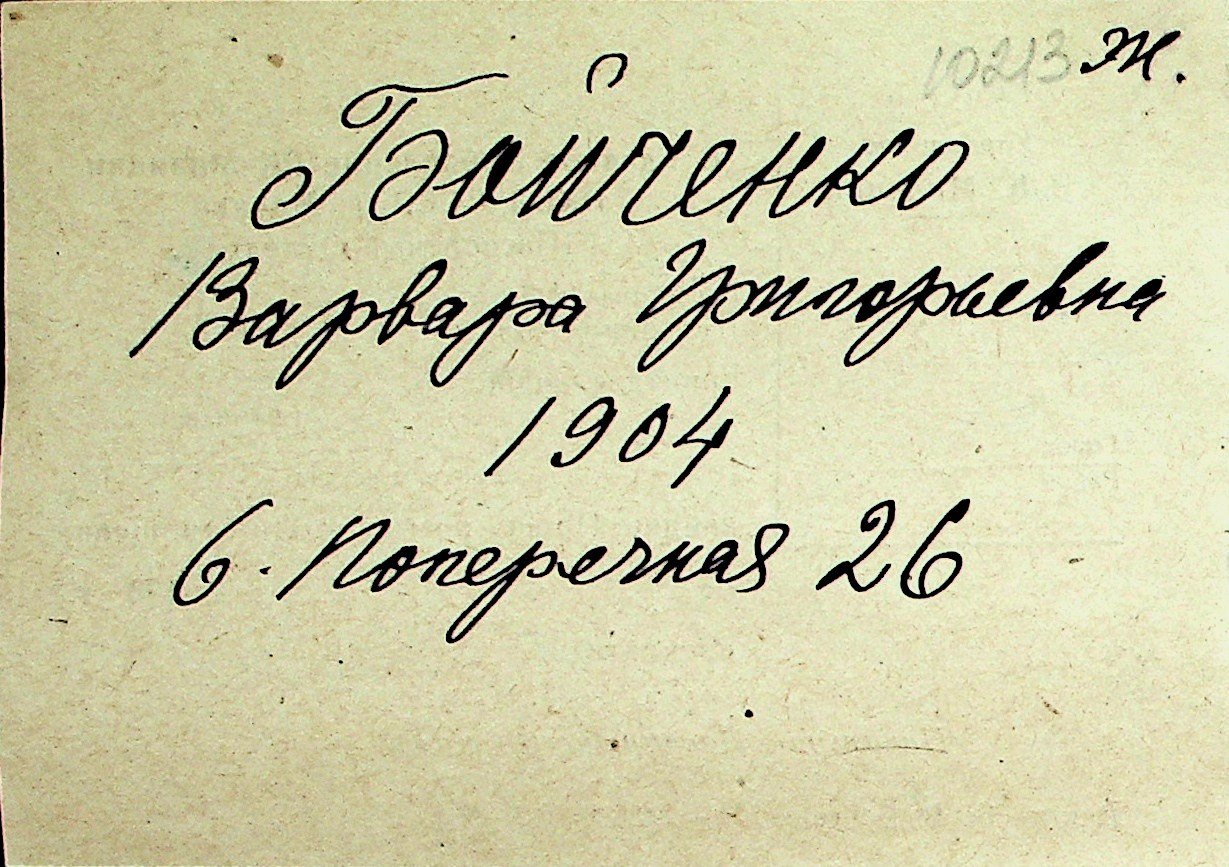 10213 ж.
Бойченко
Варвара Григорьевна
1904
6. Поперечная 26